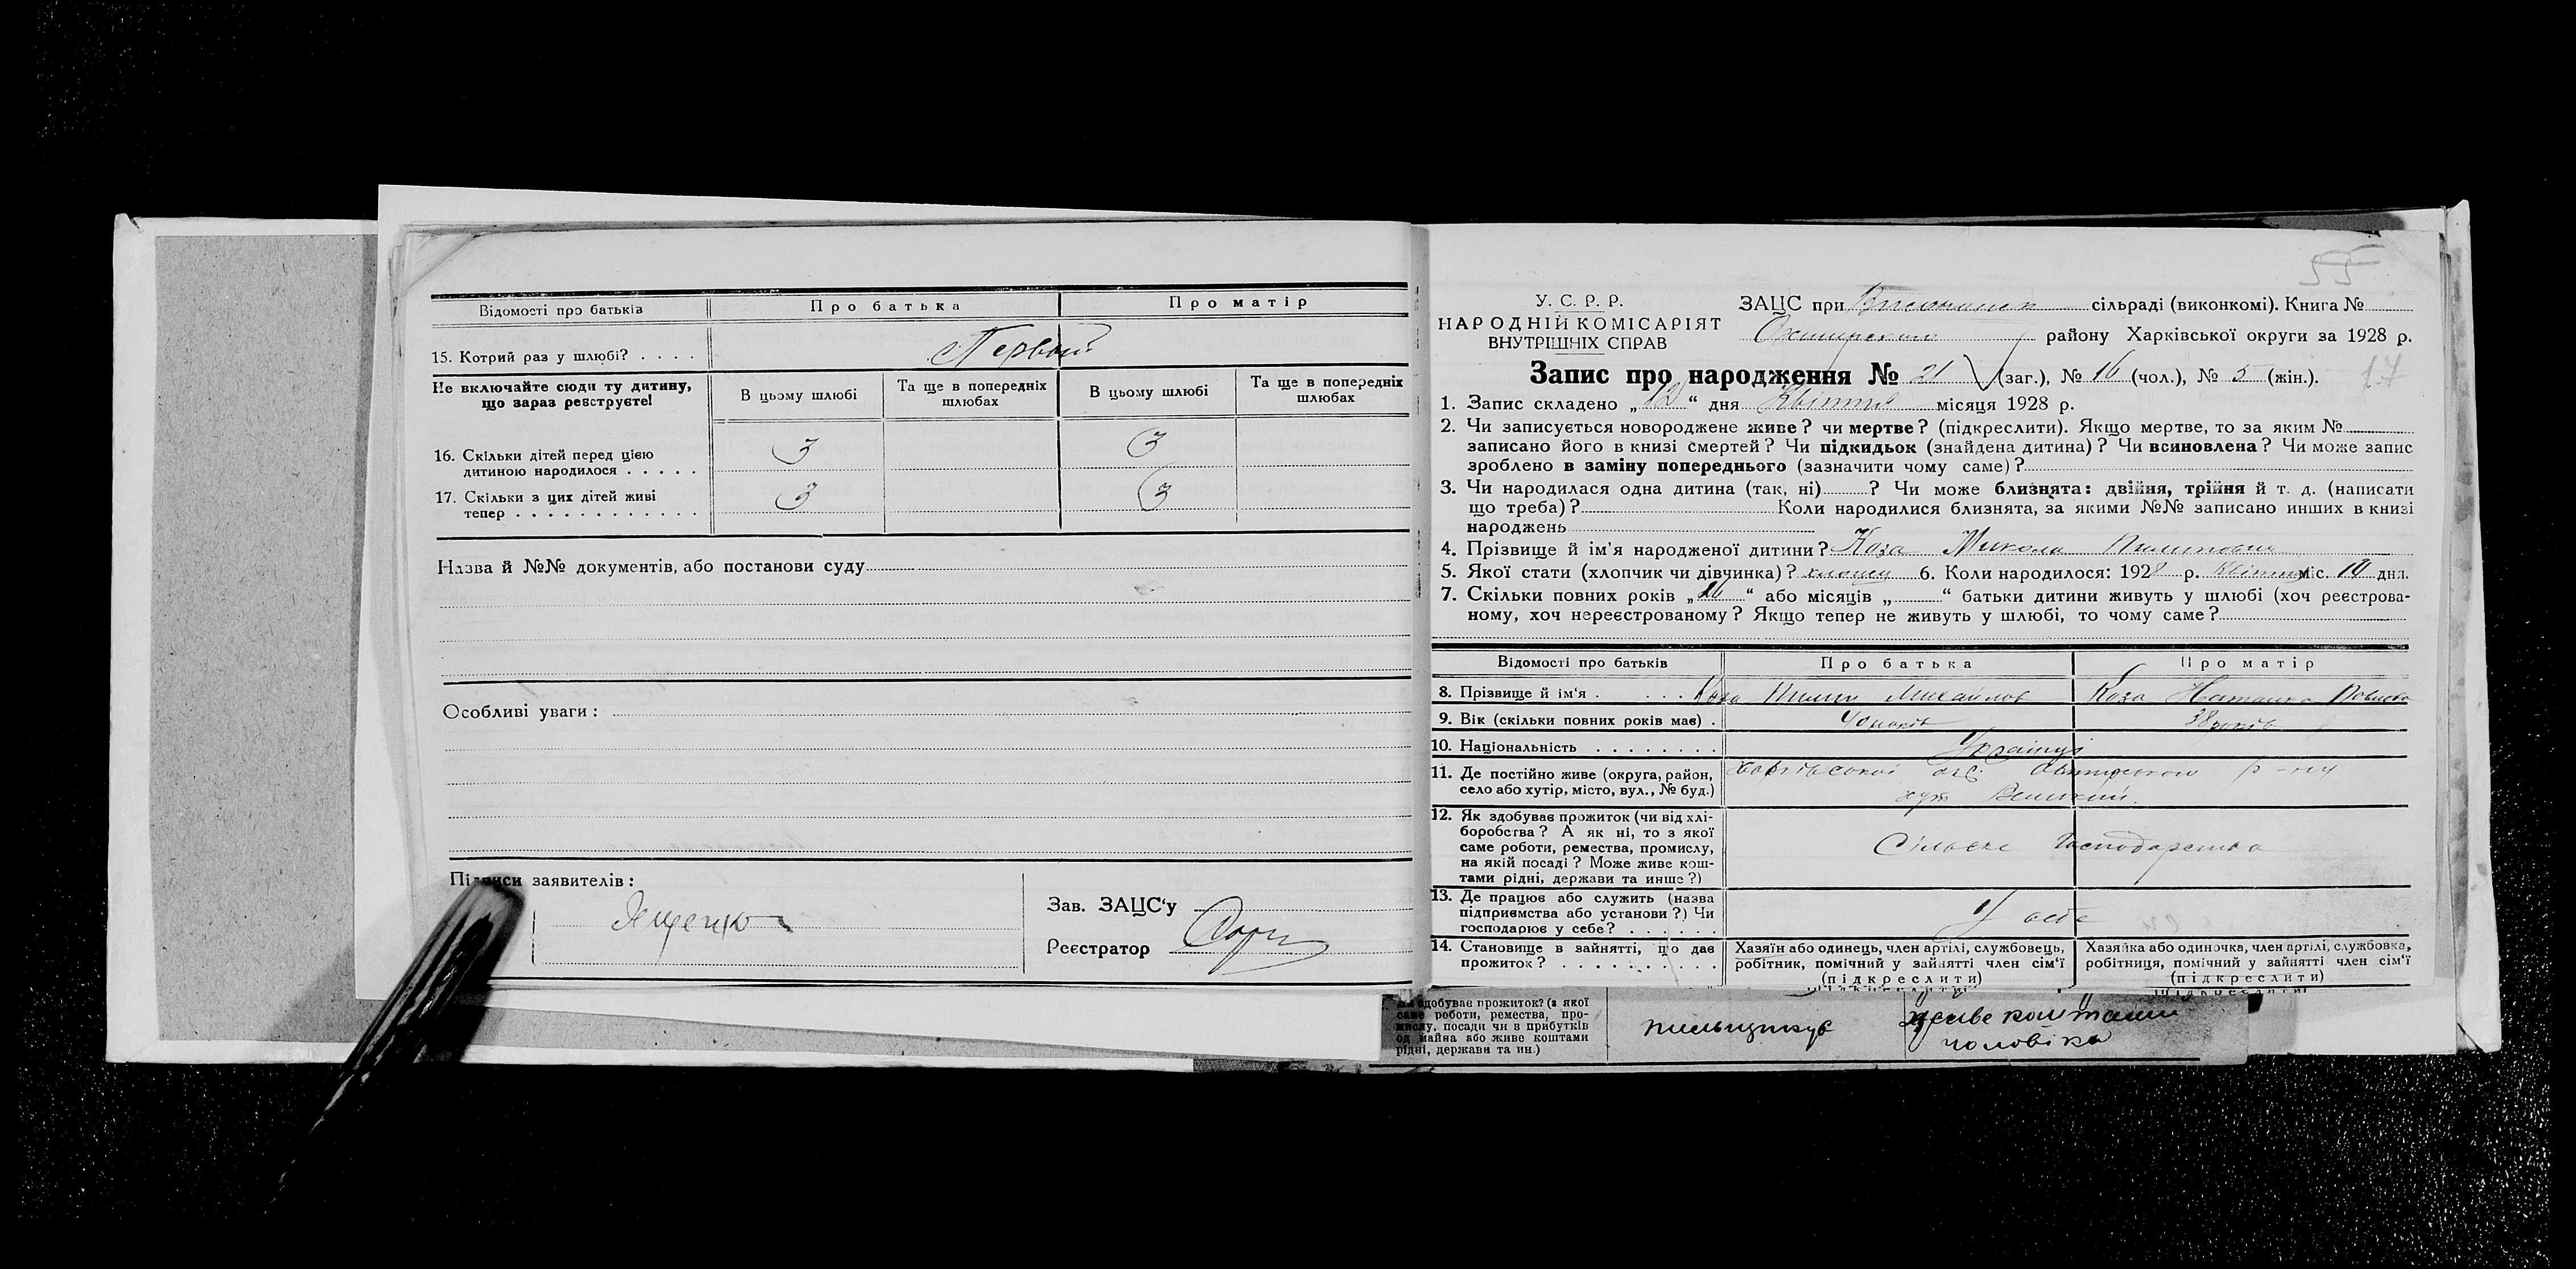 Відомості про батьків
Про батька
Про матір
15. Котрий раз у шлюбі? . . . .
Первый
Не включайте сюди ту дитину,
що зараз реєструєте!
В цьому шлюбі
Та ще в попередніх
шлюбах
В цьому шлюбі
Та ще в попередніх
шлюбах
16. Скільки дітей перед цією
дитиною народилося . . . . .
3
3
17. Скільки з цих дітей живі
тепер . . . . . . . . . . . . .
3
3
Назва й №№ документів, або постанови суду
Особливі уваги:
Підписи заявителів:
Ященко
Зав. ЗАЦС'у
Реєстратор
55
У. С. Р. Р.
НАРОДНІЙ КОМІСАРІЯТ
ВНУТРІШНІХ СПРАВ
ЗАЦС при сільраді (виконкомі). Книга №
району Харківської округи за 1928 р.
Запис про народження № 21 (заг.), № 16 (чол.), № 5 (жін.).
17
1. Запис складено „12“ дня Квітня місяця 1928 р.
2. Чи записується новороджене живе? чи мертве? (підкреслити). Якщо мертве, то за яким №
записано його в книзі смертей? Чи підкидьок (знайдена дитина)? Чи всиновлена? Чи може запис
зроблено в заміну попереднього (зазначити чому саме)?
3. Чи народилася одна дитина (так, ні)? Чи може близнята: двійня, трійня й т. д. (написати
що треба)? Коли народилися близнята, за якими №№ записано инших в книзі
народжень
4. Прізвище й ім'я народженої дитини? Коза Микола Пилипович
5. Якої стати (хлопчик чи дівчинка)? хлопец 6. Коли народилося: 1928 р. Квітня міс. 10 дня.
7. Скільки повних років „ “ або місяців „ “ батьки дитини живуть у шлюбі (хоч реєстрова-
ному, хоч нереєстрованому? Якщо тепер не живуть у шлюбі, то чому саме?
Відомості про батьків
Про батька
Про матір
8. Прізвище й ім'я . . . . Коза Пилип Михайлов
Коза Наталка Павлова
9. Вік (скільки повних років має) .
40 років
38 років
10. Національність . . . . . . . .
Українці
11. Де постійно живе (округа, район,
село або хутір, місто, вул., № буд.)
Харківської окр. Охтирського р-ну
хут Великий.
12. Як здобуває прожиток (чи від хлі-
боробства? А як ні, то з якої
саме роботи, ремества, промислу,
на якій посаді? Може живе кош-
тами рідні, держави та инше?)
Сільске Господарство
13. Де працює або служить (назва
підприємства або установи?) Чи
господарює у себе? . . . . . .
У себе
14. Становище в зайнятті, що дає
прожиток? . . . . . . . . . .
Хазяїн або одинець, член артілі, службовець,
робітник, помічний у зайнятті член сім'ї
(підкреслити)
Хазяйка або одиночка, член артілі, службовка,
робітниця, помічний у зайнятті член сім'ї
(підкреслити)
здобуває прожиток? (з якої
саме роботи, ремества, про-
мислу, посади чи з прибутків
од майна або живе коштами
рідні, держави та ин.)
пильщикує
живе коштами
чоловіка